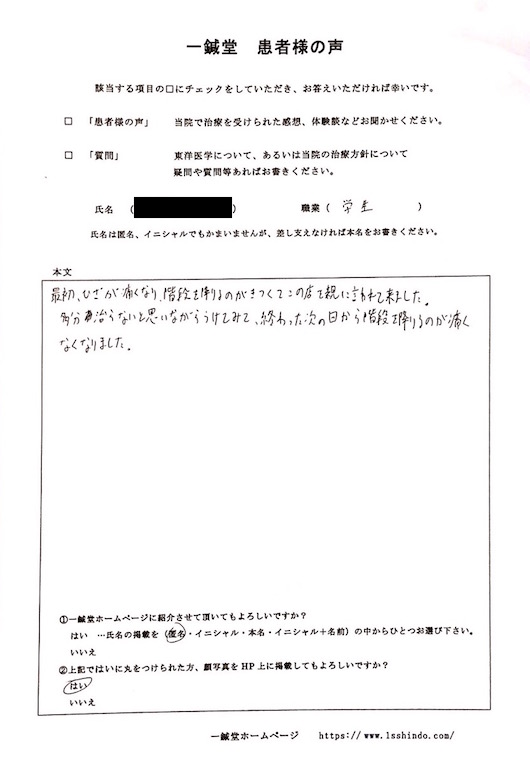 一鍼堂　患者様の声
該当する項目の□にチェックをしていただき、お答えいただければ幸いです。
□　「患者様の声」　当院で治療を受けられた感想、体験談などお聞かせください。
□　「質問」　東洋医学について、あるいは当院の治療方針について
疑問や質問等あればお書きください。
氏名　（　　　）　職業（　学生　）
氏名は匿名、イニシャルでもかまいませんが、差し支えなければ本名をお書きください。
本文
最初、ひざが痛くなり、階段を降りるのがきつくてこの店を親に言われて来ました。
多分治らないと思いながらうけてみて、終わった次の日から階段を降りるのが痛く
なくなりました。
①一鍼堂ホームページに紹介させて頂いてもよろしいですか？
はい　…氏名の掲載を（匿名・イニシャル・本名・イニシャル＋名前）の中からひとつお選び下さい。
いいえ
②上記ではいに丸をつけられた方、顔写真をHP上に掲載してもよろしいですか？
はい
いいえ
一鍼堂ホームページ　https://www.1sshindo.com/